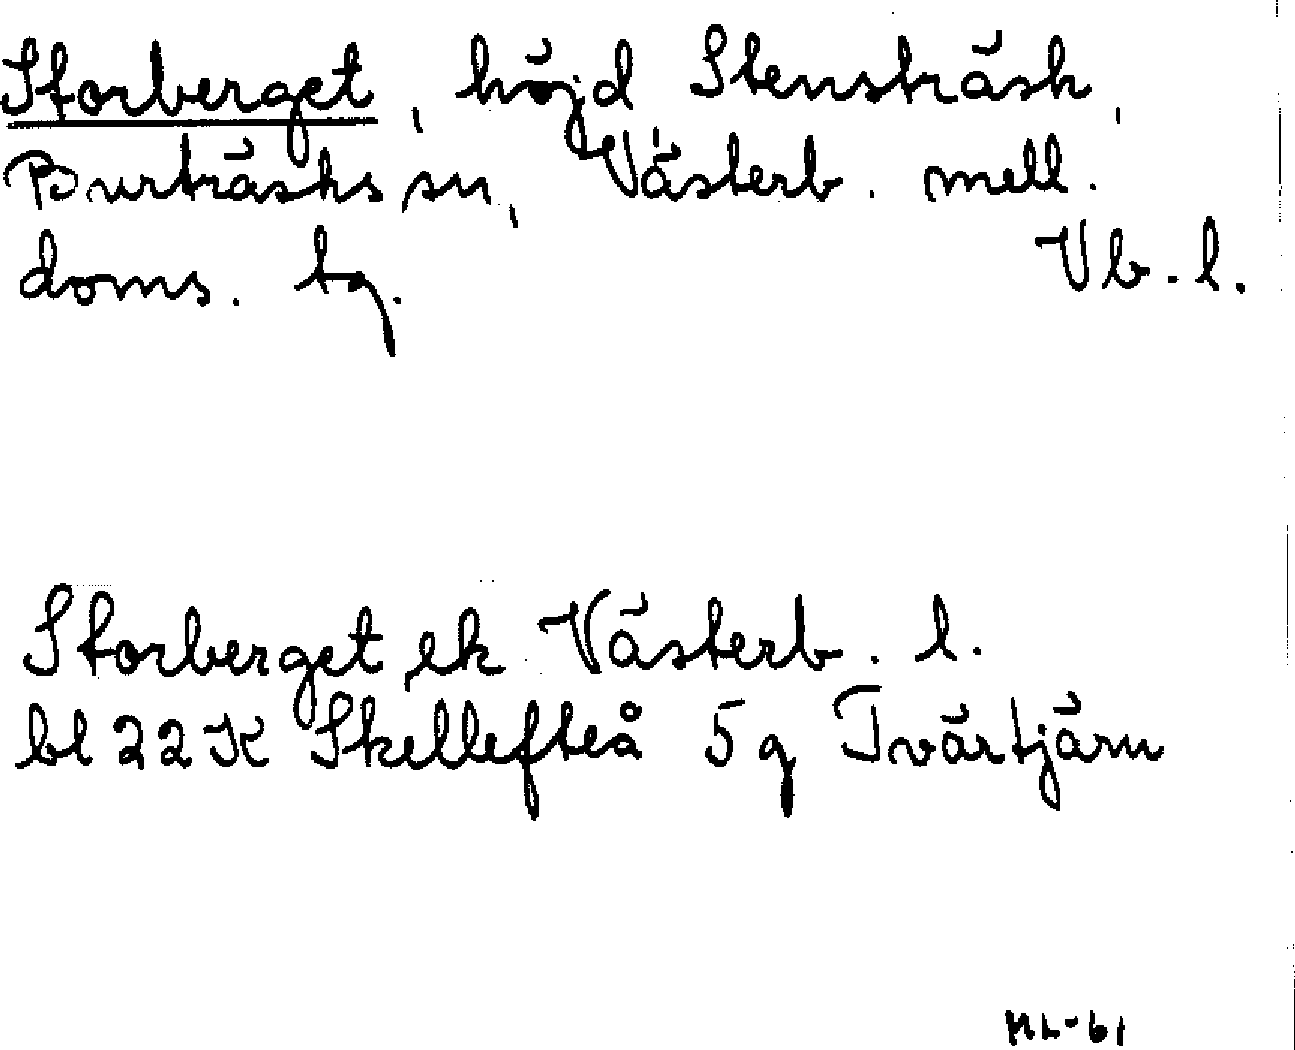 Storberget, höjd Stensträsk,
Burträsks sn, Västerb. mell.
doms. tg. Vb. l.
Storberget, ek Västerb. l.
bl 22K Skellefteå 5g Tvärtjärn
ML-61